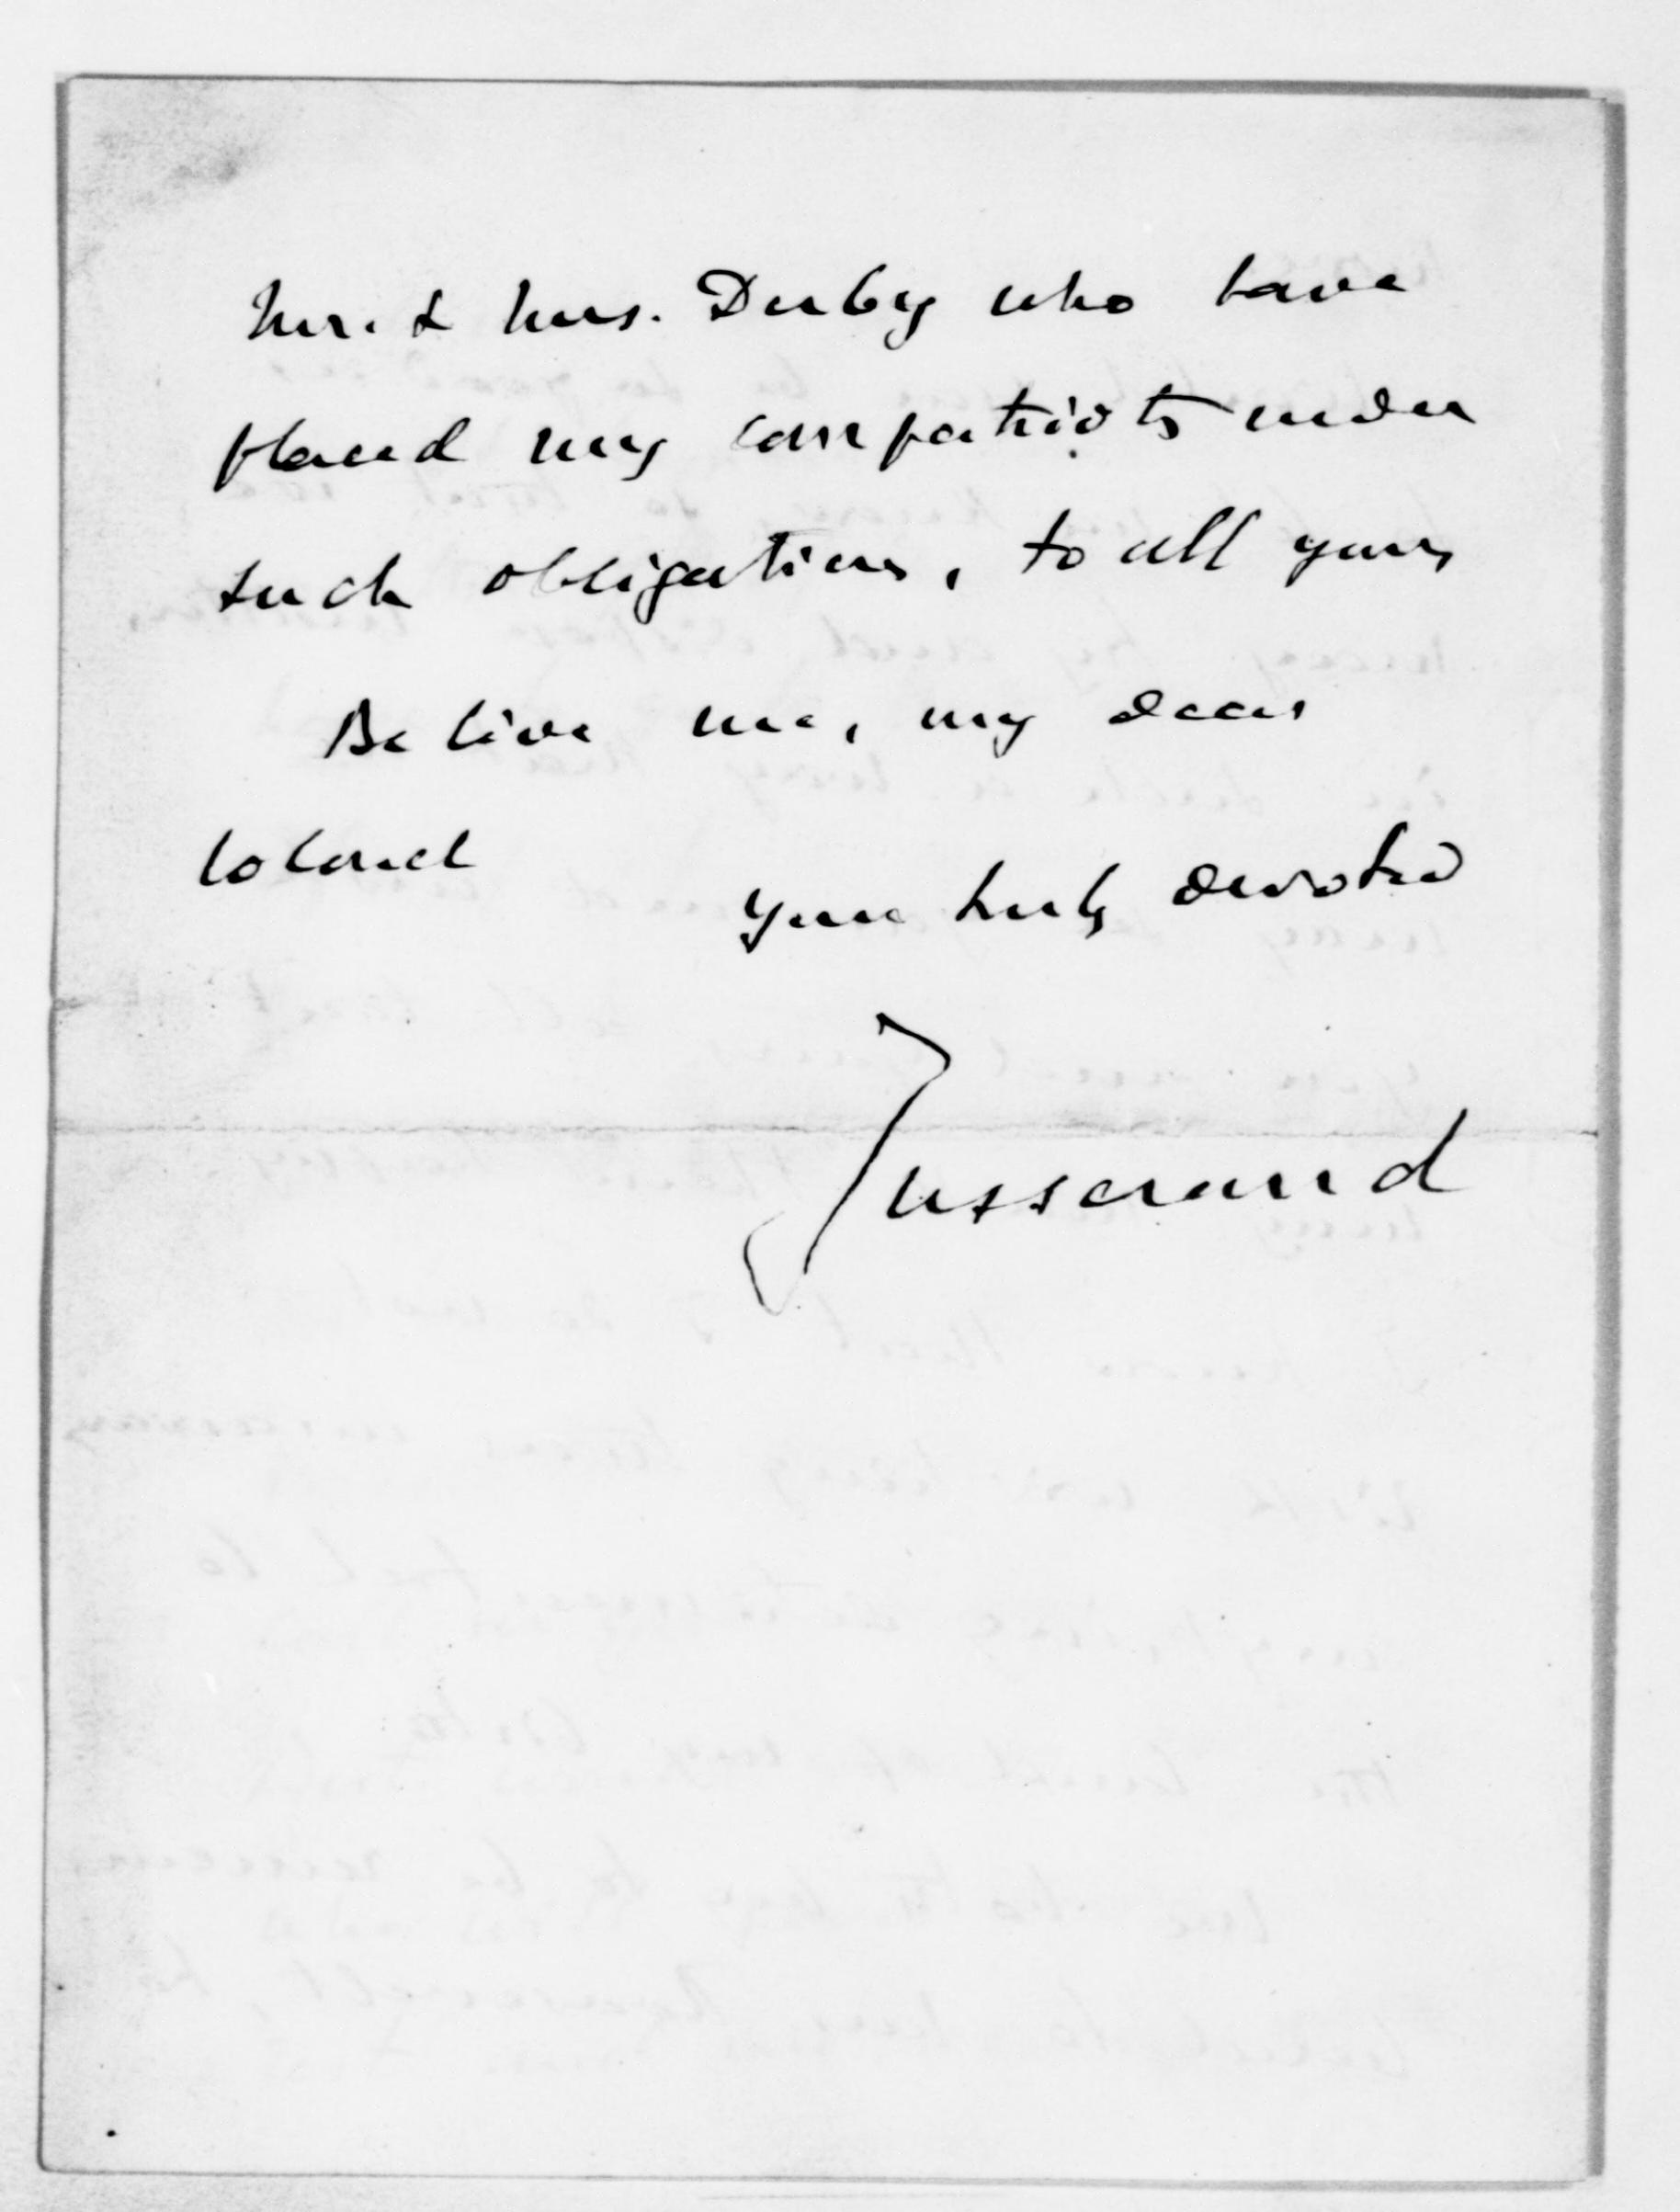 Mr. & Mrs. Derby who have
placed my compatriots under
such obligations, to all yours
Believe me, my dear
Colonel
Your truly devoted
Jusserand